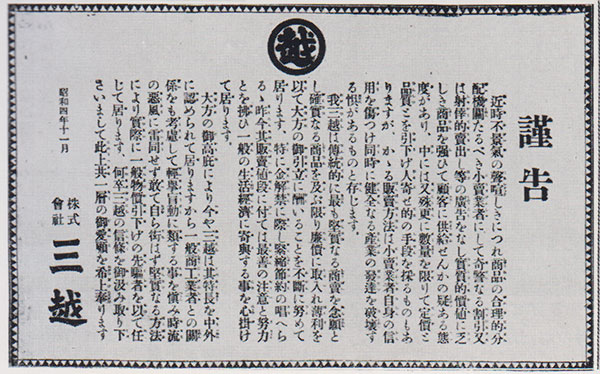 越
謹告
近時不景氣の聲喧しきにつれ商品の合理的分
配機關たるべき小賣業者にして頻繁なる割引又
は射倖的賣出し等の廣告をなし實質的價値に乏
しき商品を強ひて顧客に供給せんかの疑ある態
度があり、中には又殊更に數量を限りて定價と
品質とを引下げ人寄せ的の手段を採るものもあ
りますが、かゝる販賣方法は小賣業者自身の信
用を傷つけ同時に健全なる産業の發達を破壞す
る惧があるものと存じます。
我三越は傳統的に最も堅實なる商賣を念願と
し確實なる商品を及ぶ限り廉價に取入れ薄利を
以て大方の御引立に酬いることを不斷に努めて
居ります。特に金解禁に際し緊縮節約の唱へら
るゝ昨今其販賣値段に付ては最善の注意と努力
とを拂ひ一般の生活經濟に寄與する事を心掛け
て居ります。
大方の御高庇により今や三越は其特長を中外
に認められて居りますから一般商工業者との關
係をも考慮して輕擧盲動に類する事を愼み時流
の惡風に雷同せず敢て自ら衒はず堅實なる方法
により實際に一般物價引下げの先驅者を以て任
じて居ります。何卒三越の信條を御汲み取り下
さいまして此上共一層の御愛顧を希上奉ります
昭和四年十一月
株式會社 三越